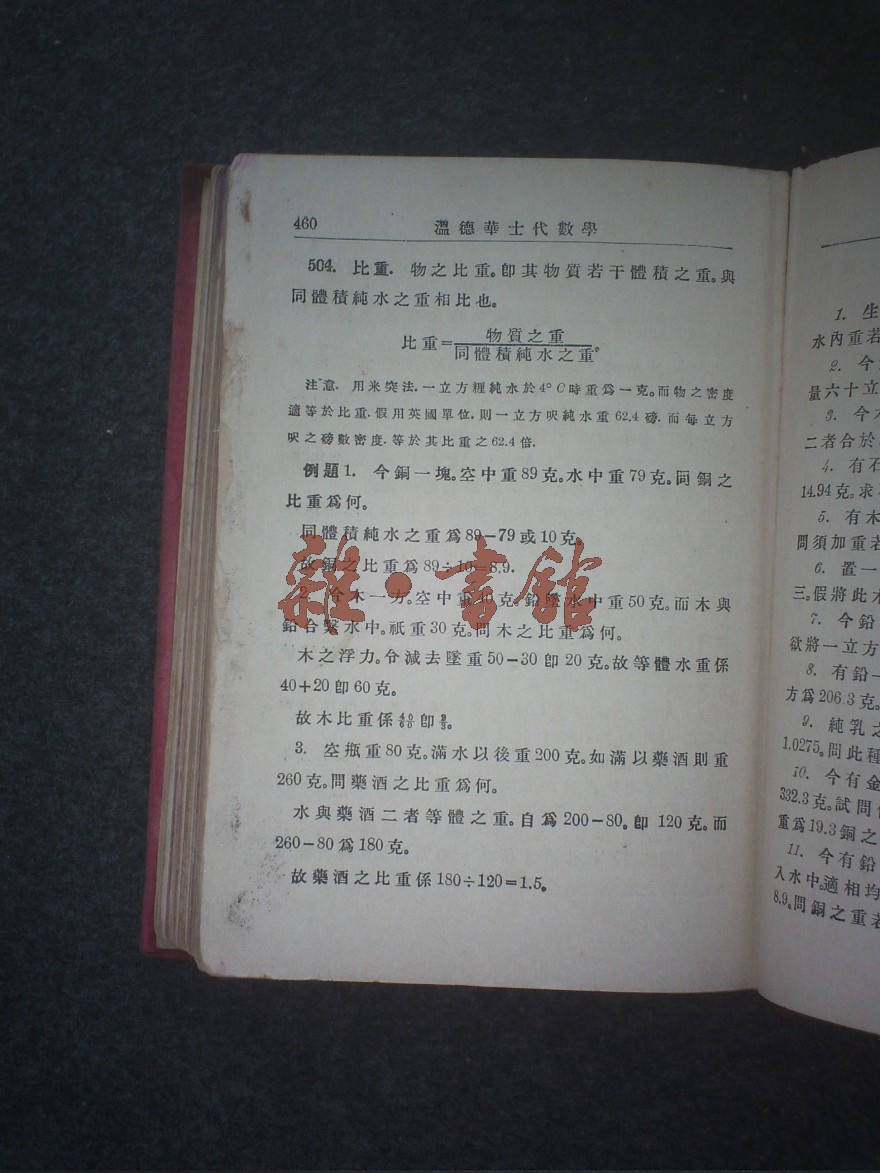 460 溫德華士代數學
504. 比重. 物之比重。卽其物質若干體積之重。與
同體積純水之重相比也。
比重=物質之重/同體積純水之重。
注意. 用米突法.一立方糎純水於4°C時重爲一克。而物之密度
適等於比重.假用英國單位.則一立方呎純水重62.4磅.而每立方
呎之磅數密度.等於其比重之62.4倍.
例題1. 今銅一塊。空中重89克。水中重79克。問銅之
比重爲何。
同體積純水之重爲89-79或10克。
故銅之比重爲89÷10=8.9.
2. 今木一方。空中重40克。鉛墜水中重50克。而木與
鉛合繫水中。祇重30克。問木之比重爲何。
木之浮力。令減去墜重50-30卽20克。故等體水重係
40+20卽60克。
故木比重係40/60卽2/3。
3. 空瓶重80克。滿水以後重200克。如滿以藥酒則重
260克。問藥酒之比重爲何。
水與藥酒二者等體之重。自爲200-80。卽120克。而
260-80爲180克。
故藥酒之比重係180÷120=1.5。
雜·書館
1. 生
水內重若
2. 今
量六十立
3. 今
二者合於
4. 有石
14.94克。求
5. 有木
問須加重若
6. 置一
三。假將此木
7. 今鉛
欲將一立方
8. 有鉛一
方爲206.3克。
9. 純乳之
1.0275。問此種
10. 今有金
332.3克。試問
重爲19.3銅之
11. 今有鉛
入水中。適相均
8.9。問銅之重若